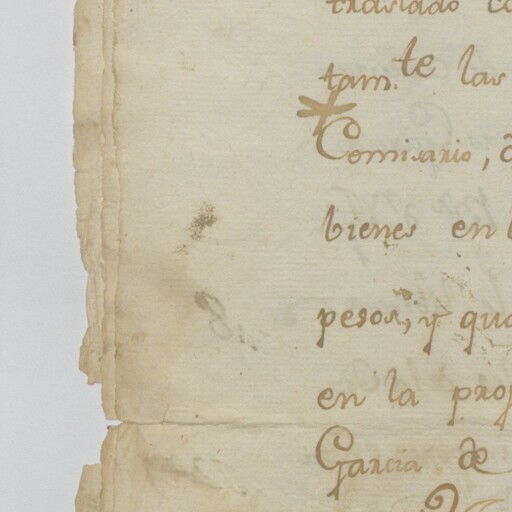 traslado
tam.te las
Comisario,
bienes en
pesos, y
en la
Garcia de